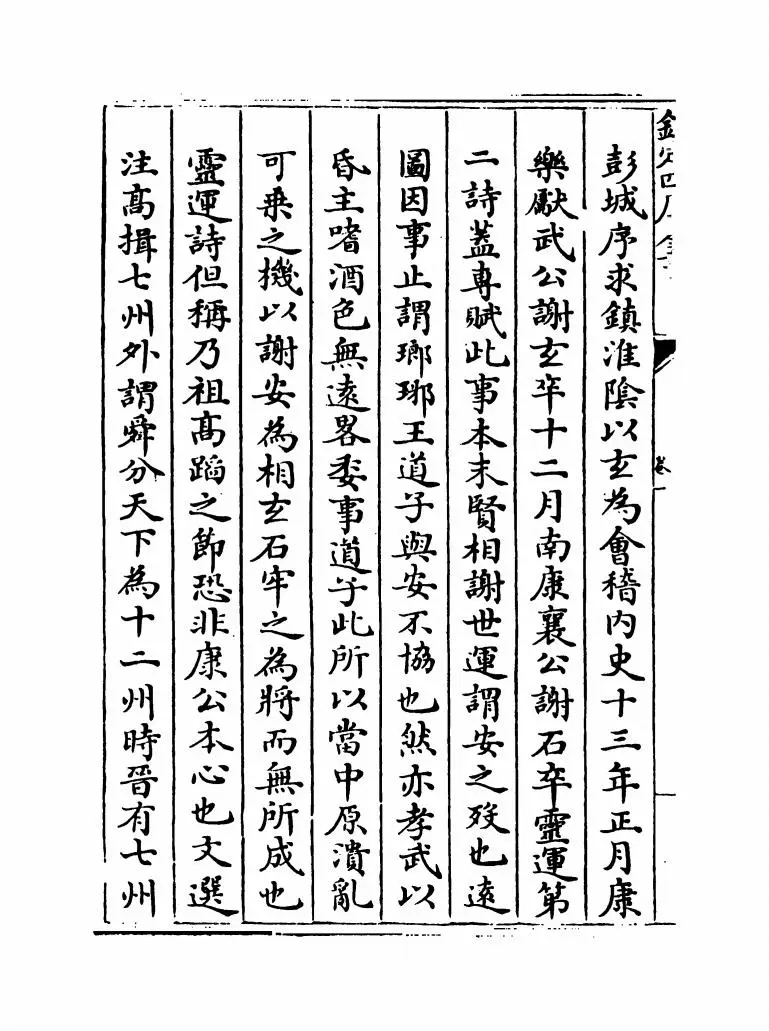 欽定四庫全書
卷一
彭城序求鎮淮陰以玄為會稽内史十三年正月康
樂獻武公謝玄卒十二月南康襄公謝石卒靈運第
二詩蓋專賦此事本末賢相謝世運謂安之歿也逺
圖因事止謂瑯琊王道子與安不協也然亦孝武以
昏主嗜酒色無逺畧委事道子此所以當中原潰亂
可乗之機以謝安為相玄石牢之為將而無所成也
靈運詩但稱乃祖髙蹈之節恐非康公本心也文選
注髙揖七州外謂舜分天下為十二州時晉有七州